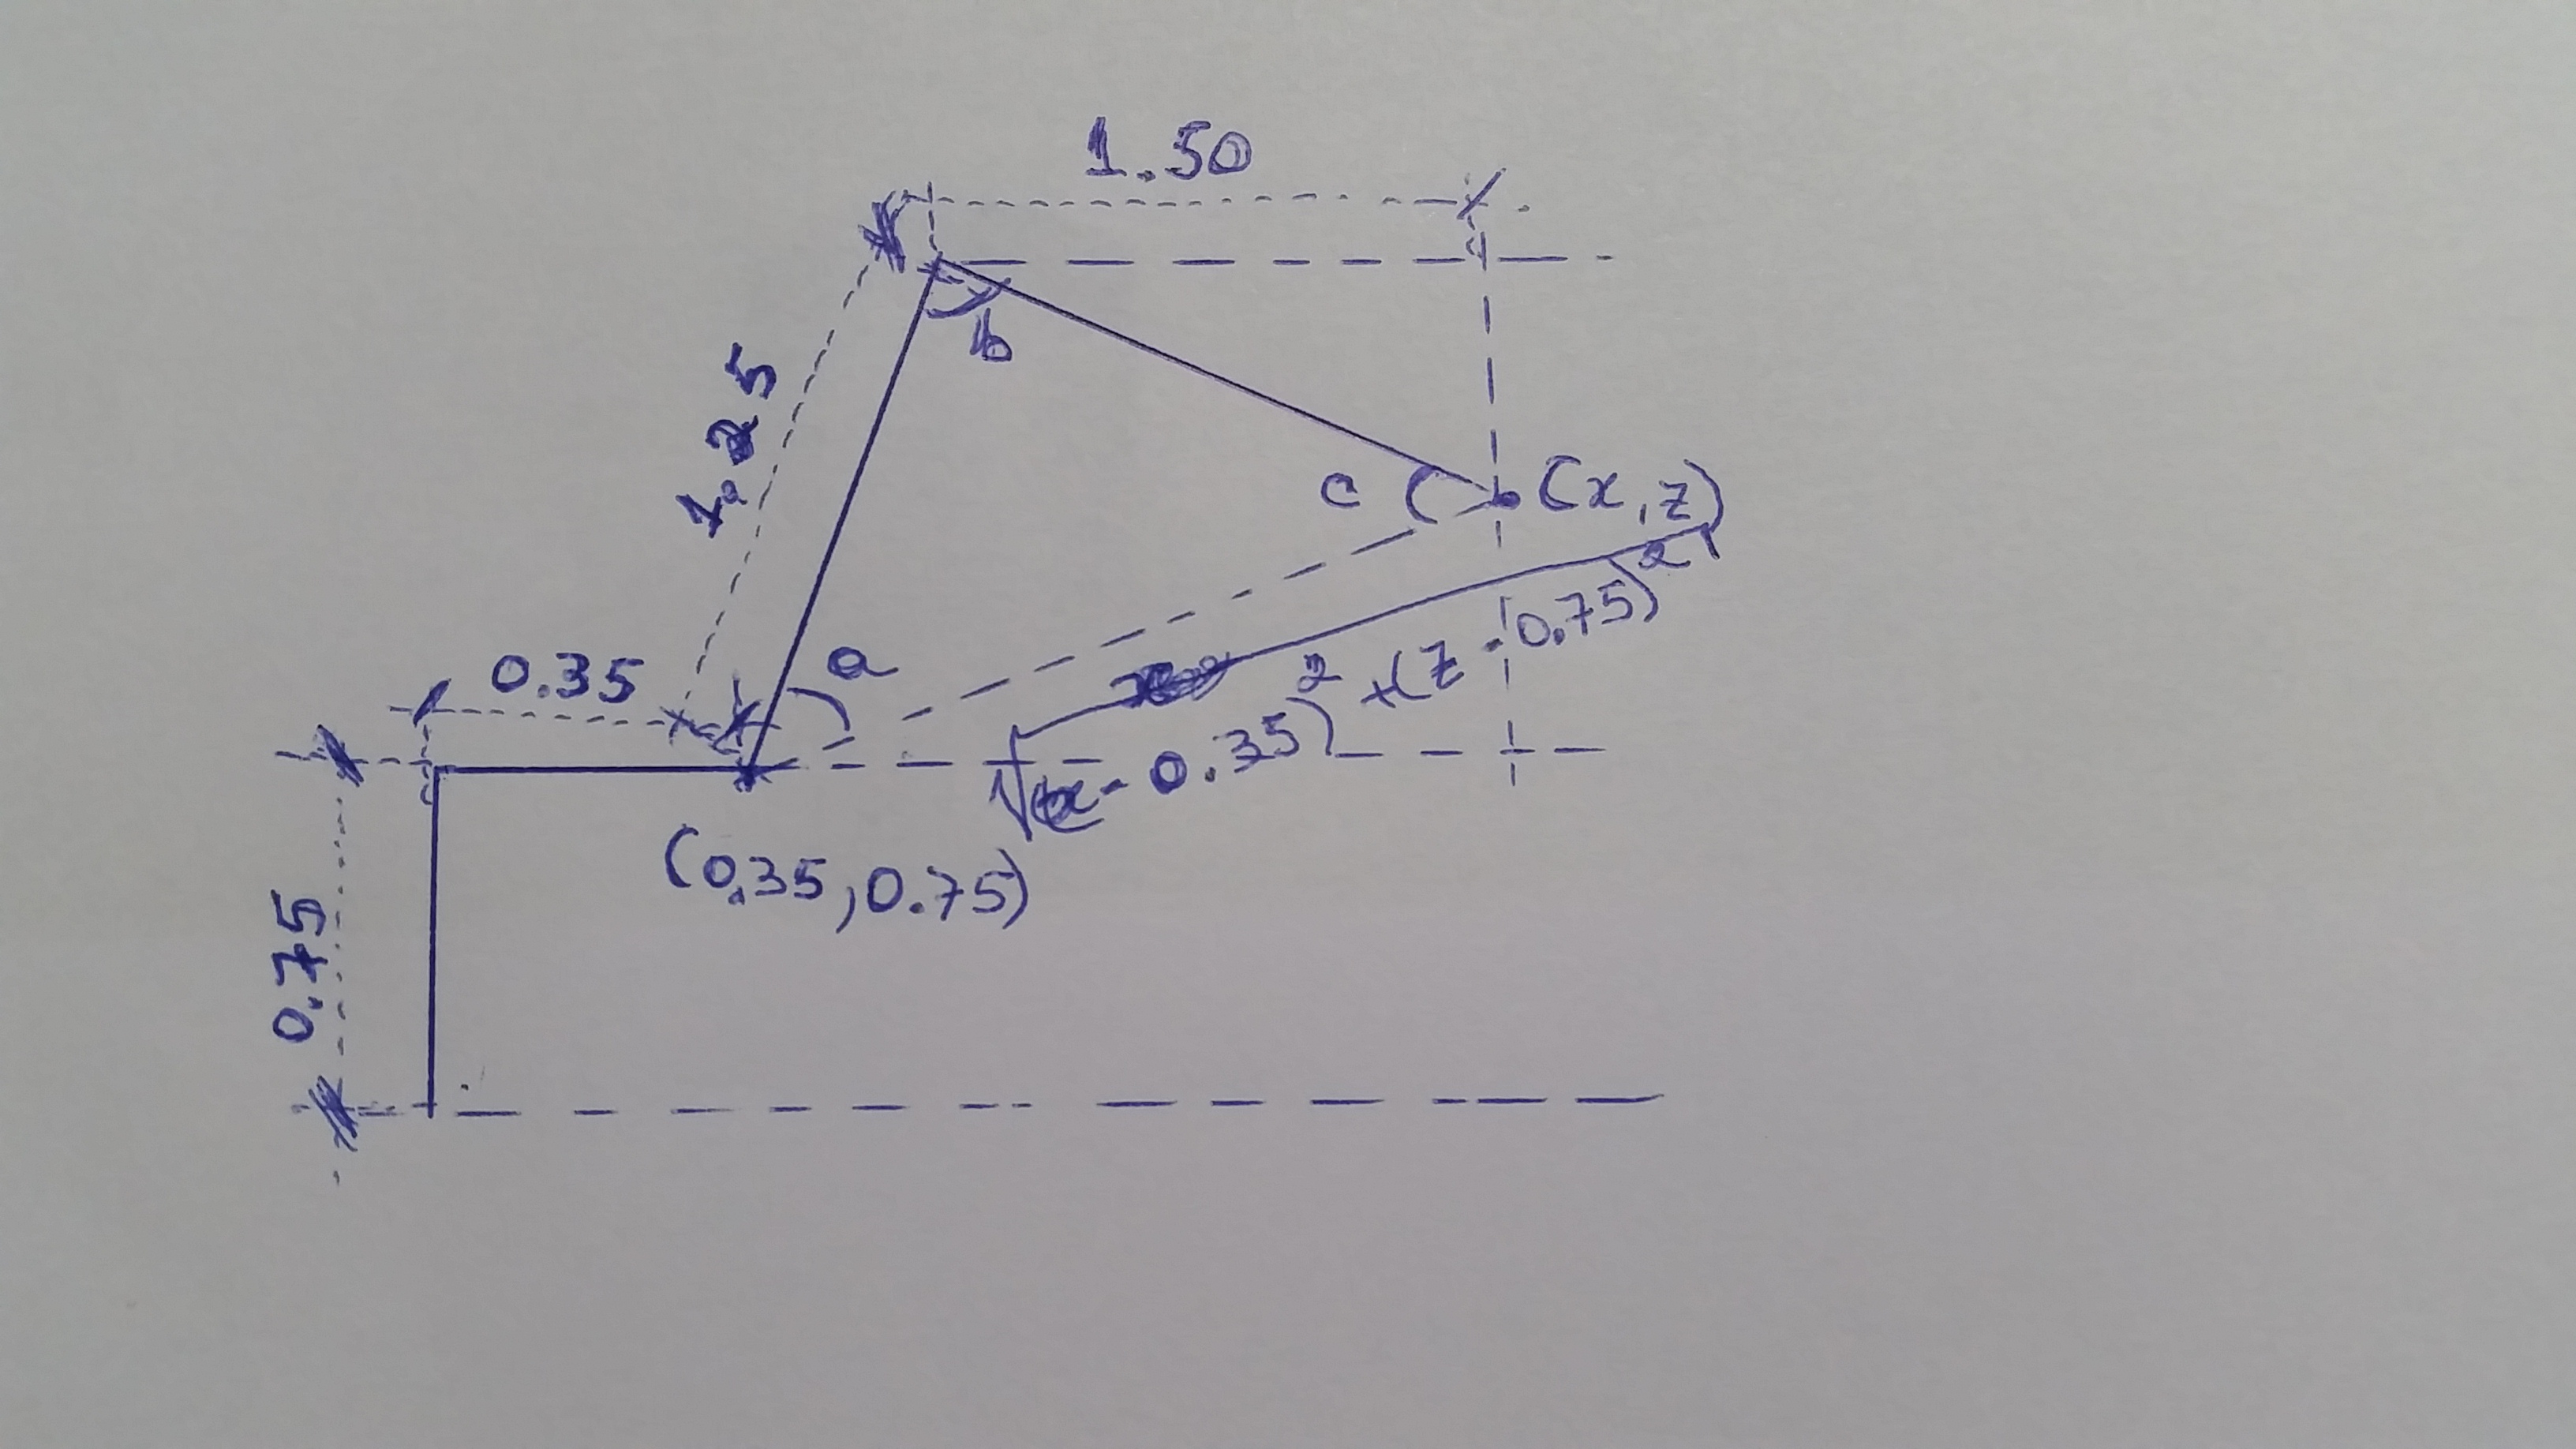 1.50
1.25
b
c
(x,z)
0.35
a
√(x-0.35)²+(z-0.75)²
(0.35,0.75)
0.75